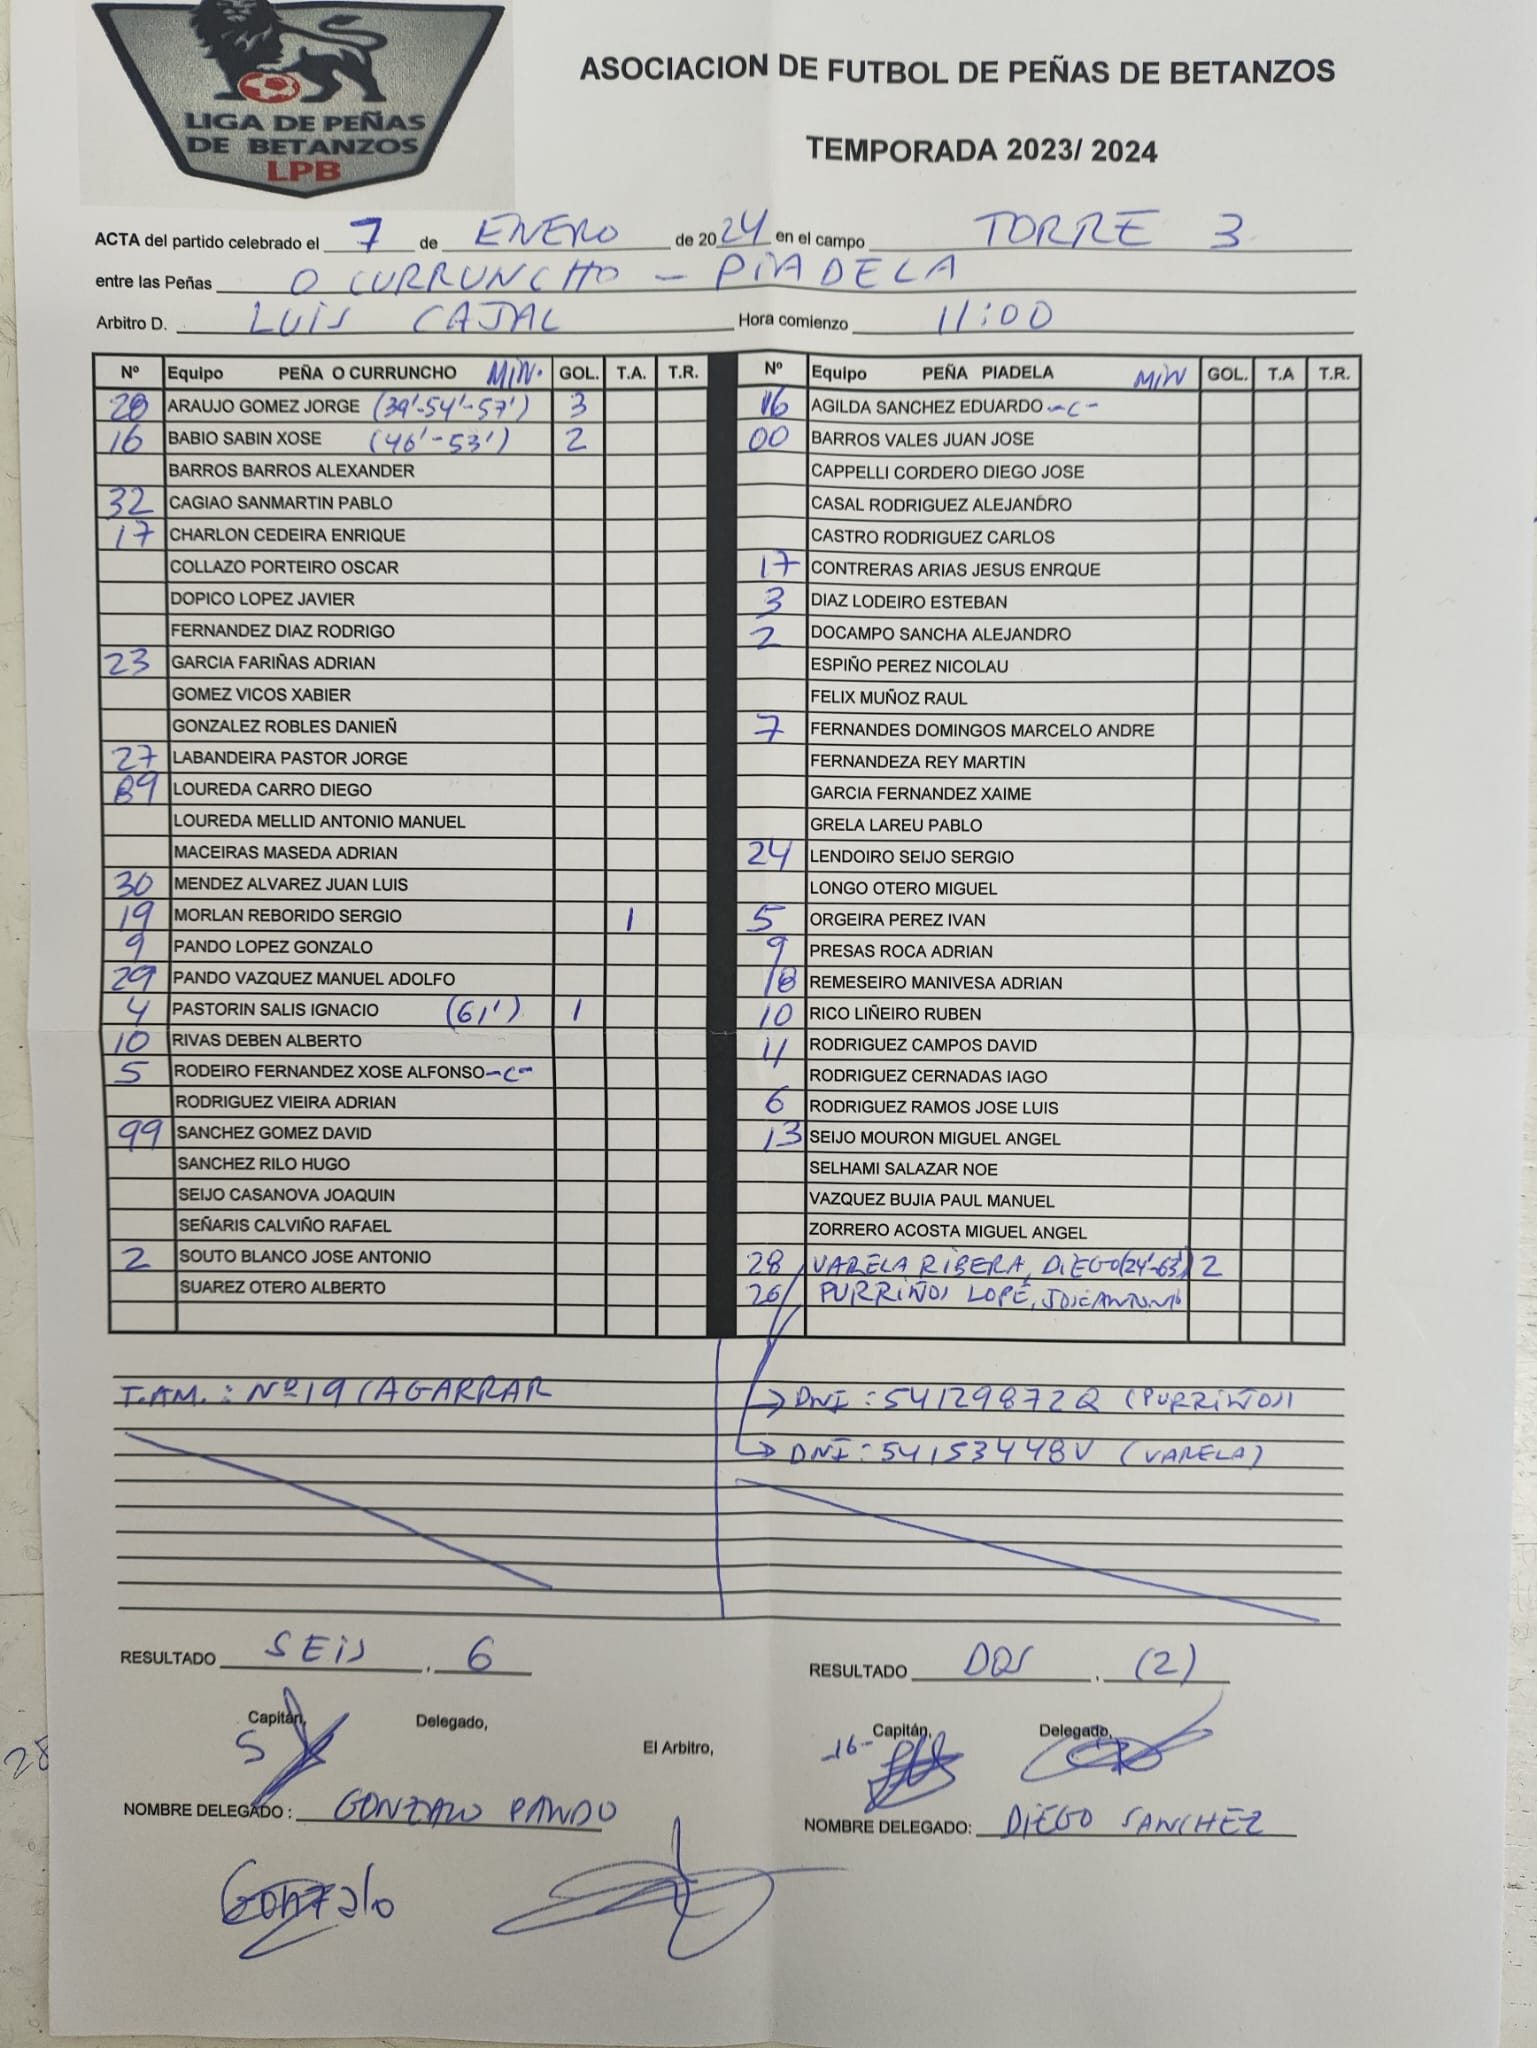 LIGA DE PEÑAS
DE BETANZOS
LPB
ASOCIACION DE FUTBOL DE PEÑAS DE BETANZOS
TEMPORADA 2023/ 2024
ACTA del partido celebrado el 7 de ENERO de 2024 en el campo TORRE 3
entre las Peñas O CURRUNCHO - PIADELA
Arbitro D. LUIS CAJAL Hora comienzo 11:00
Nº Equipo PEÑA O CURRUNCHO MIN. GOL. T.A. T.R.
20 ARAUJO GOMEZ JORGE (39'-54'-57') 3
16 BABIO SABIN XOSE (46'-53') 2
BARROS BARROS ALEXANDER
32 CAGIAO SANMARTIN PABLO
17 CHARLON CEDEIRA ENRIQUE
COLLAZO PORTEIRO OSCAR
DOPICO LOPEZ JAVIER
FERNANDEZ DIAZ RODRIGO
23 GARCIA FARIÑAS ADRIAN
GOMEZ VICOS XABIER
GONZALEZ ROBLES DANIEÑ
27 LABANDEIRA PASTOR JORGE
89 LOUREDA CARRO DIEGO
LOUREDA MELLID ANTONIO MANUEL
MACEIRAS MASEDA ADRIAN
30 MENDEZ ALVAREZ JUAN LUIS
19 MORLAN REBORIDO SERGIO 1
9 PANDO LOPEZ GONZALO
29 PANDO VAZQUEZ MANUEL ADOLFO
4 PASTORIN SALIS IGNACIO (61') 1
10 RIVAS DEBEN ALBERTO
5 RODEIRO FERNANDEZ XOSE ALFONSO -C-
RODRIGUEZ VIEIRA ADRIAN
99 SANCHEZ GOMEZ DAVID
SANCHEZ RILO HUGO
SEIJO CASANOVA JOAQUIN
SEÑARIS CALVIÑO RAFAEL
2 SOUTO BLANCO JOSE ANTONIO
SUAREZ OTERO ALBERTO
Nº Equipo PEÑA PIADELA MIN GOL. T.A T.R.
16 AGILDA SANCHEZ EDUARDO -C-
00 BARROS VALES JUAN JOSE
CAPPELLI CORDERO DIEGO JOSE
CASAL RODRIGUEZ ALEJANDRO
CASTRO RODRIGUEZ CARLOS
17 CONTRERAS ARIAS JESUS ENRQUE
3 DIAZ LODEIRO ESTEBAN
2 DOCAMPO SANCHA ALEJANDRO
ESPIÑO PEREZ NICOLAU
FELIX MUÑOZ RAUL
7 FERNANDES DOMINGOS MARCELO ANDRE
FERNANDEZA REY MARTIN
GARCIA FERNANDEZ XAIME
GRELA LAREU PABLO
24 LENDOIRO SEIJO SERGIO
LONGO OTERO MIGUEL
5 ORGEIRA PEREZ IVAN
9 PRESAS ROCA ADRIAN
18 REMESEIRO MANIVESA ADRIAN
10 RICO LIÑEIRO RUBEN
4 RODRIGUEZ CAMPOS DAVID
RODRIGUEZ CERNADAS IAGO
6 RODRIGUEZ RAMOS JOSE LUIS
13 SEIJO MOURON MIGUEL ANGEL
SELHAMI SALAZAR NOE
VAZQUEZ BUJIA PAUL MANUEL
ZORRERO ACOSTA MIGUEL ANGEL
28 VARELA RIBERA, DIEGO (24'-63') 2
26 PURRIÑOS LOPÉ, JOSE ANTONIO
T.AM.: Nº 19 (AGARRAR
DNI: 54129872Q (PURRIÑOS)
DNI: 54153448V (VARELA)
RESULTADO SEIS . 6
RESULTADO DOS . (2)
Capitán, Delegado, El Arbitro, Capitán, Delegado,
5 -16-
28
NOMBRE DELEGADO : GONZALO PANDO
NOMBRE DELEGADO: DIEGO SANCHEZ
Gonzalo